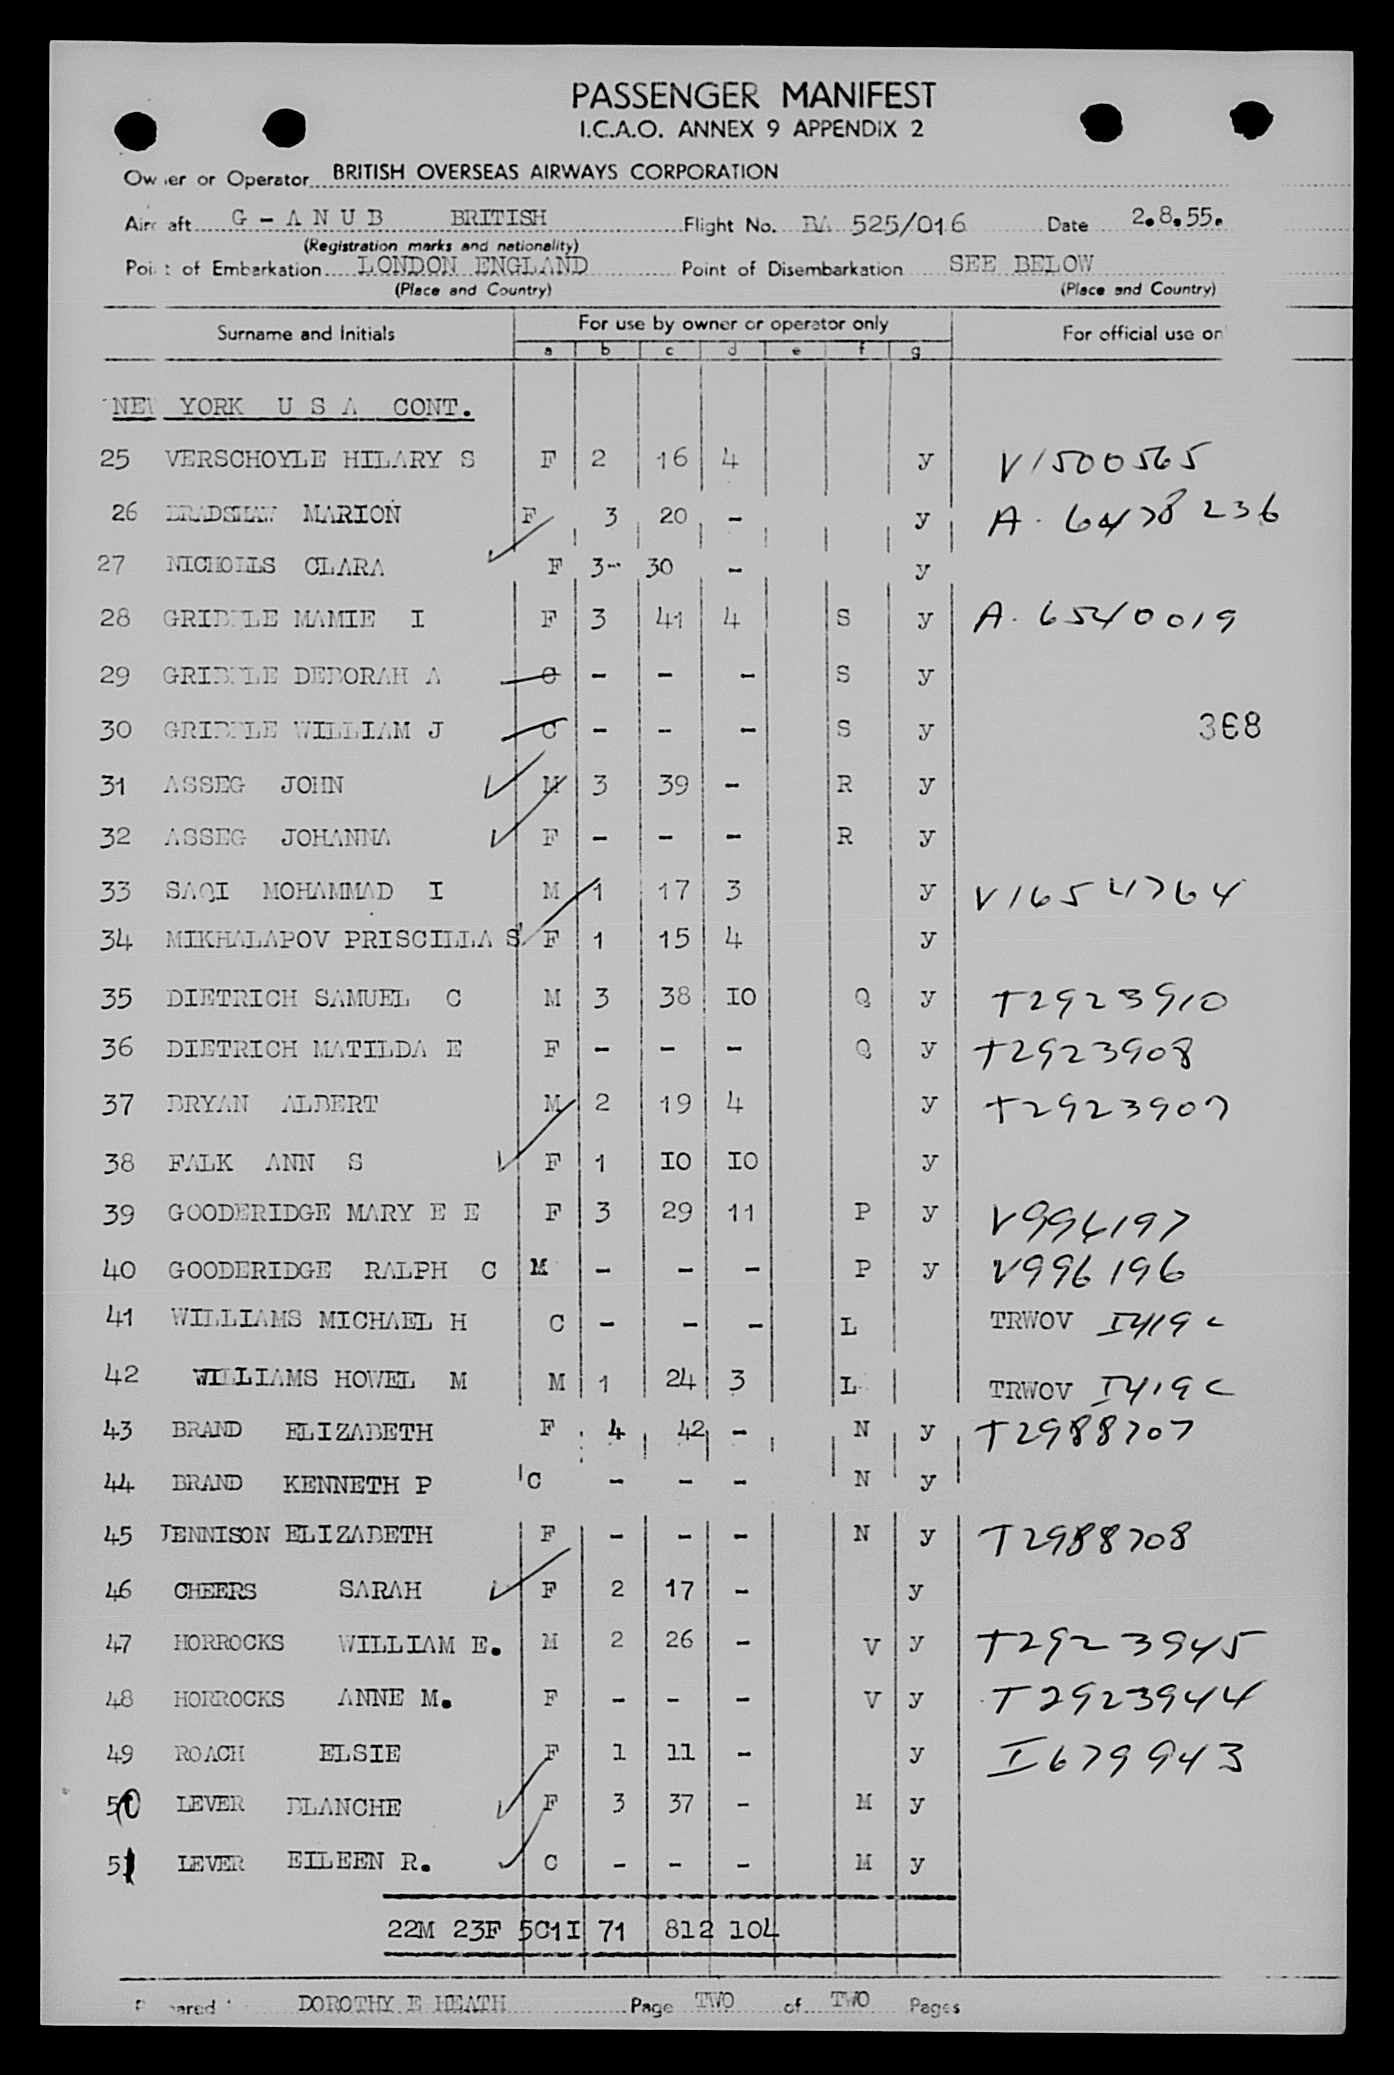 PASSENGER MANIFEST
I.C.A.O. ANNEX 9 APPENDIX 2
Ow er or Operator BRITISH OVERSEAS AIRWAYS CORPORATION
Airc aft G - A N U B BRITISH Flight No. BA 525/016 Date 2.8.55.
(Registration marks and nationality)
Poi t of Embarkation LONDON ENGLAND Point of Disembarkation SEE BELOW
(Place and Country) (Place and Country)
Surname and Initials For use by owner or operator only For official use on
a b c d e f g
NEW YORK U S A CONT.
25 VERSCHOYLE HILARY S F 2 16 4 y V1500565
26 BRADSHAW MARION F 3 20 - y A. 6478236
27 NICHOLLS CLARA F 3- 30 - y
28 GRIBBLE MAMIE I F 3 41 4 S y A. 6540019
29 GRIBBLE DEBORAH A C - - - S y
30 GRIBBLE WILLIAM J C - - - S y 368
31 ASSEG JOHN M 3 39 - R y
32 ASSEG JOHANNA F - - - R y
33 SAQI MOHAMMAD I M 1 17 3 y V1654764
34 MIKHALAPOV PRISCILLA S F 1 15 4 y
35 DIETRICH SAMUEL C M 3 38 IO Q y T2923910
36 DIETRICH MATILDA E F - - - Q y T2923908
37 BRYAN ALBERT M 2 19 4 y T2923907
38 FALK ANN S F 1 IO IO y
39 GOODERIDGE MARY E E F 3 29 11 P y V996197
40 GOODERIDGE RALPH C M - - - P y V996196
41 WILLIAMS MICHAEL H C - - - L TRWOV I419c
42 WILLIAMS HOWEL M M 1 24 3 L TRWOV I419c
43 BRAND ELIZABETH F 4 42 - N y T2988707
44 BRAND KENNETH P C - - - N y
45 JENNISON ELIZABETH F - - - N y T2988708
46 CHEERS SARAH F 2 17 - y
47 HORROCKS WILLIAM E. M 2 26 - V y T2923945
48 HORROCKS ANNE M. F - - - V y T2923944
49 ROACH ELSIE F 1 11 - y I679943
50 LEVER BLANCHE F 3 37 - M y
51 LEVER EILEEN R. C - - - M y
22M 23F 5C1I 71 812 104
P pared DOROTHY E HEATH Page TWO of TWO Pages